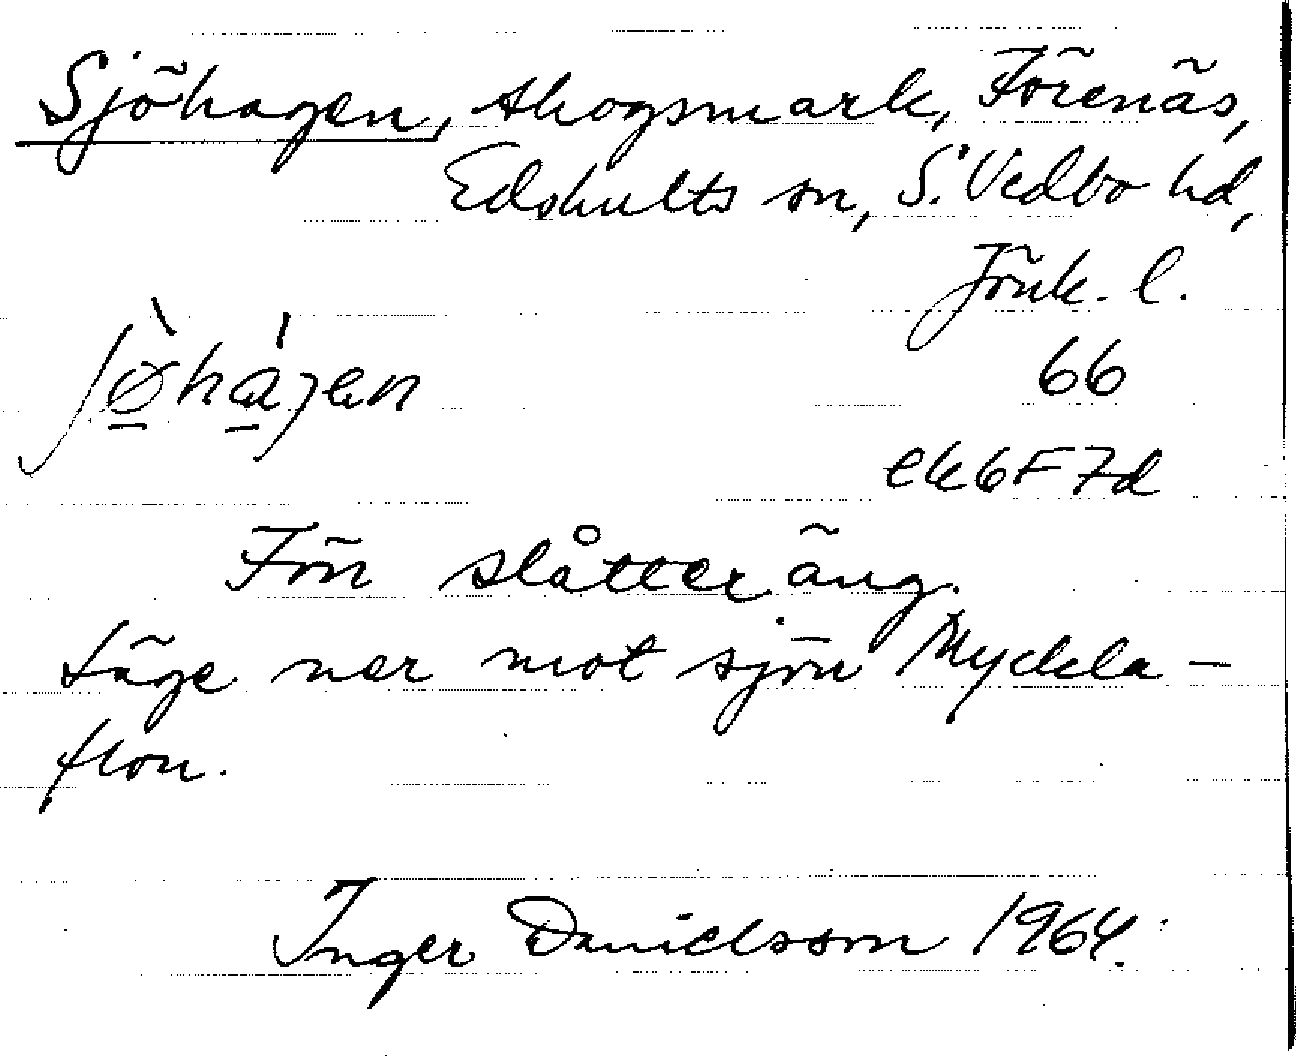 Sjöhagen, skogsmark, Förenäs,
Edshults sn, S. Vedbo hd,
Jönk. l.
66
ek6F7d
Förr slåtteräng.
Läge ner mot sjön Myckla-
flon.
Inger Danielsson 1964.